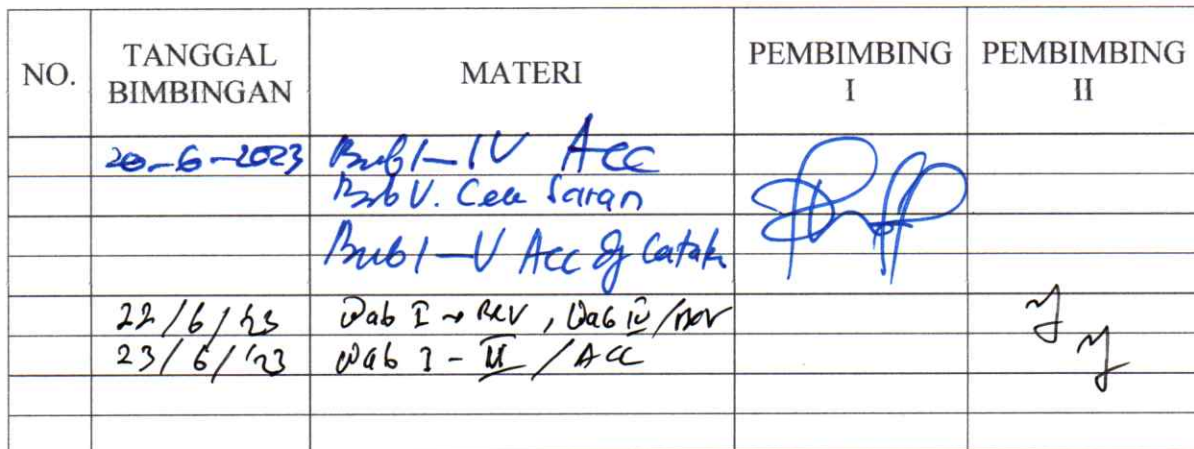 NO.
TANGGAL BIMBINGAN
MATERI
PEMBIMBING I
PEMBIMBING II
20-6-2023 Bab I-IV Acc
Bab V. Cek Saran
Bab I-V Acc dg Catatn
22/6/23 Bab I → Rev, Bab IV/Rev
23/6/'23 Bab I - / ACC